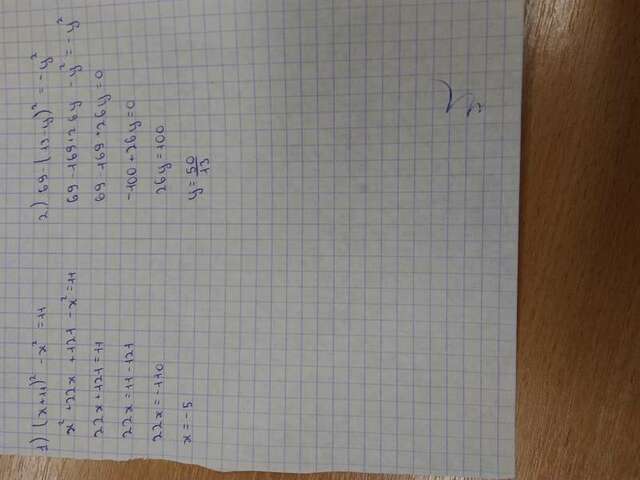 1) (x+11)² - x² = 11
x² + 22x + 121 - x² = 11
22x + 121 = 11
22x = 11 - 121
22x = -110
x = -5
2) 69 - (13-y)² = -y²
69 - 169 + 26y - y² = -y²
69 - 169 + 26y = 0
-100 + 26y = 0
26y = 100
y = 50/13